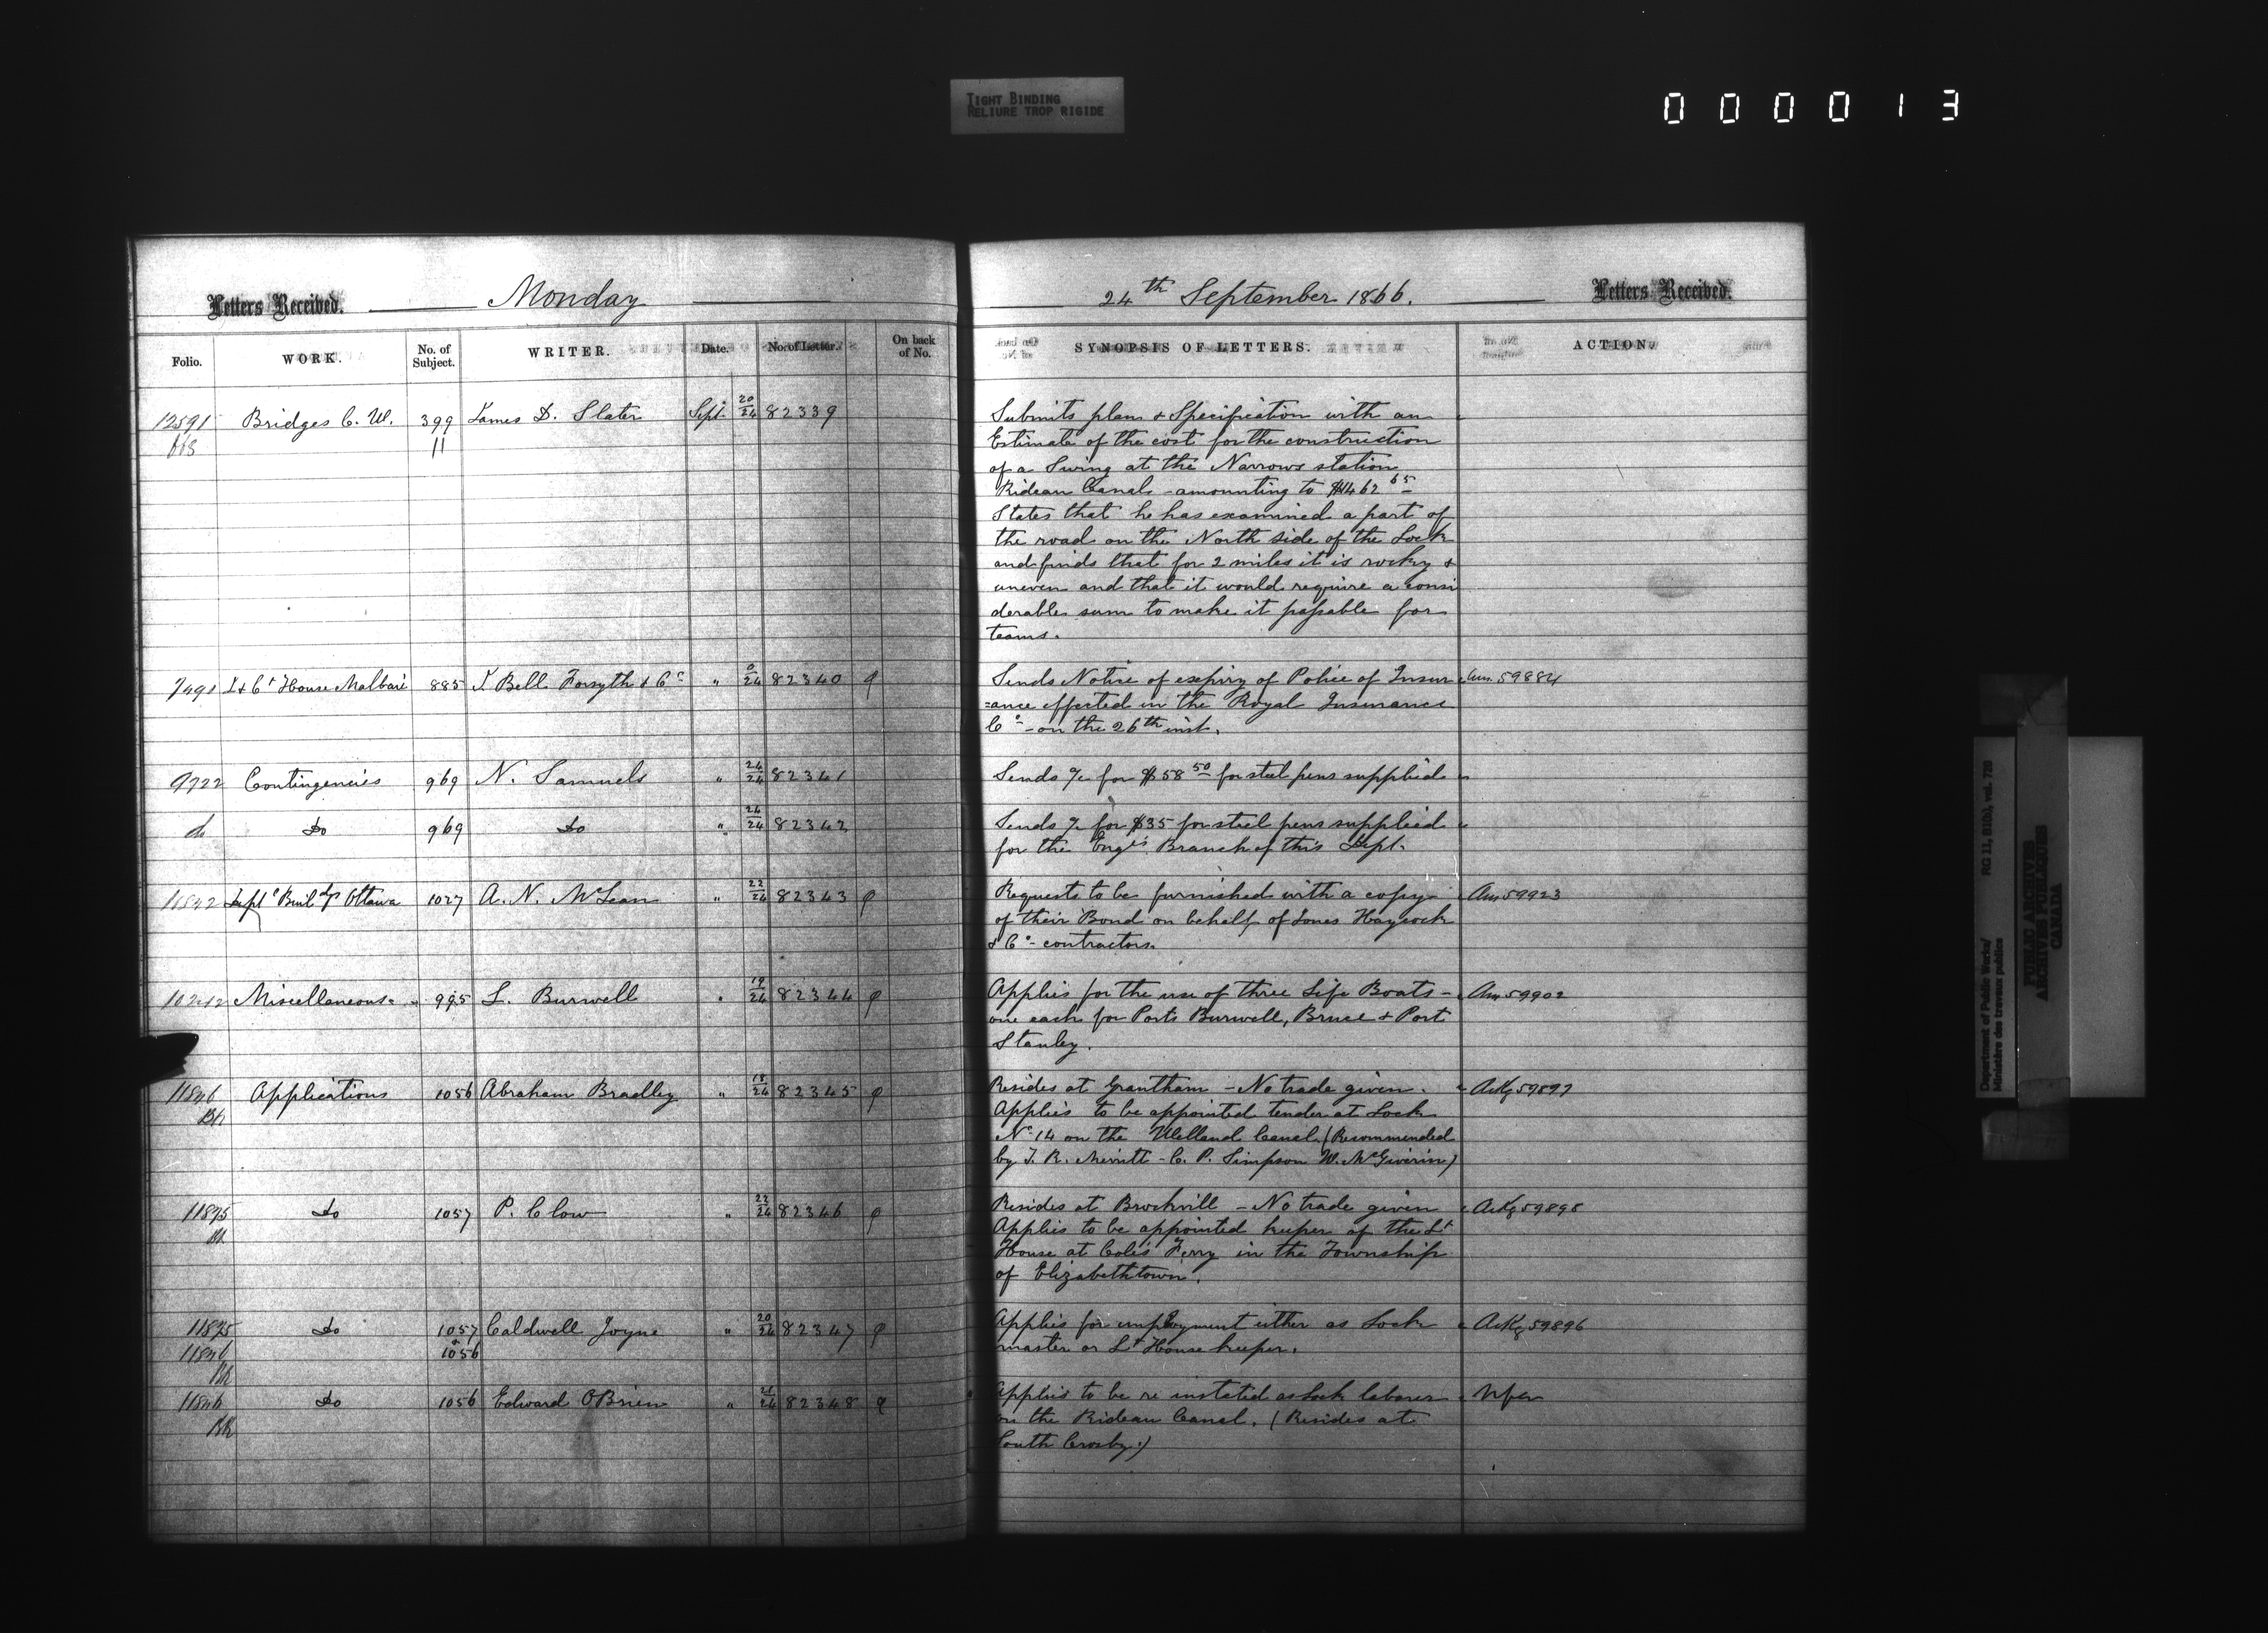 TIGHT BINDING
RELIURE TROP RIGIDE
000013
Letters Received. Monday
Folio. WORK. No. of Subject. WRITER. Date. No. of Letter. On back of No.
12591 Bridges C. W. 399 James D. Slater Sept. 20/24 82339
11
7491 Lt House Malbaie 885 J. Bell Forsyth & Co " 82340
9722 Contingencies 969 N. Samuels " 24/24 82341
do Do 969 Do " 24/24 82342
11842 Deptl Buildgs Ottawa 1027 A. N. McLean " 22/24 82343
Miscellaneous 995 L. Burwell " 19/24 82344
11846 Applications 1056 Abraham Bradley " 18/24 82345
11895 Do 1057 P. Clow " 22/24 82346
11895 Do 1057 Caldwell Joyne " 20/24 82347
11846 & 1056
11846 Do 1056 Edward OBrien " 21/24 82348
24th September 1866. Letters Received.
SYNOPSIS OF LETTERS. ACTION.
Submits plan & Specification with an
Estimate of the cost for the construction
of a Swing at the Narrows station
Rideau Canal - amounting to $1462 65
States that he has examined a part of
the road on the North side of the Lock
and finds that for 2 miles it is rocky &
uneven and that it would require a consi
derable sum to make it passable for
teams.
Sends Notice of expiry of Police of Insur Ans. 59884
=ance effected in the Royal Insurance
Co - on the 26th inst.
Sends a/c for $58 50 for steel pens supplied
Sends a/c for $35 for steel pens supplied
for the Engrs Branch of this Dept.
Requests to be furnished with a copy Ans 59923
of their Bond on behalf of Jones Haycock
& Co - contractors.
Applies for the use of three Life Boats - Ans 59902
one each for Ports Burwell, Bruce & Port
Stanley.
Resides at Grantham - No trade given. Ackg 59897
Applies to be appointed tender at Lock
No 14 on the Welland Canal. (Recommended
by J. R. Merritt - C. P. Simpson W. McGiverin)
Resides at Brockvill - No trade given Ackg 59898
Applies to be appointed keeper of the Lt
House at Coles Ferry in the Township
of Elizabethtown.
Applies for employment either as Lock Ackg 59896
master or Lt House keeper.
Applies to be re instated as Lock laborer Nfa
on the Rideau Canal. (Resides at
South Crosby.)
Department of Public Works/
Ministère des travaux publics
RG 11, B1(b), vol. 720
PUBLIC ARCHIVES
ARCHIVES PUBLIQUES
CANADA